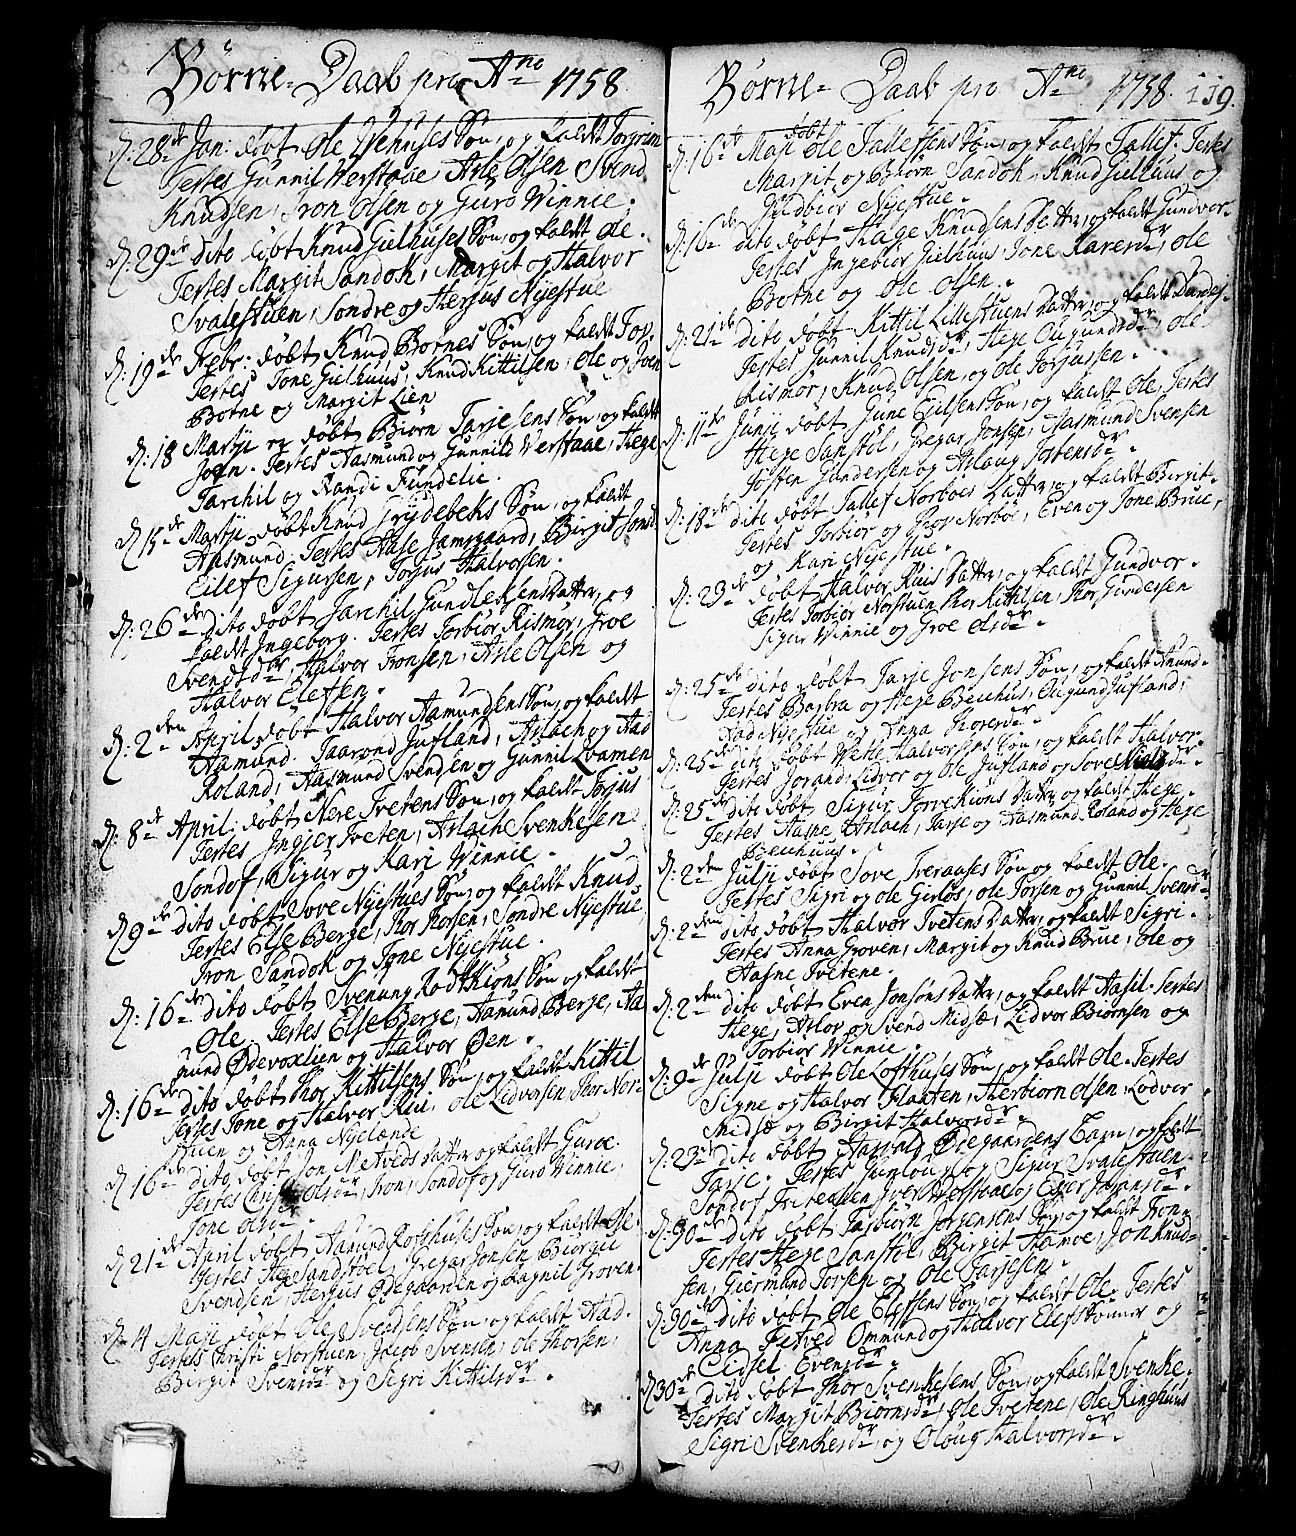 Børne-Daab pro Ano 1758.
D: 28de Jan: døbt Ole Vehuses Søn, og kaldt Torgrim
Testes Gunnil Verstaae, Asle Olsen Svend
Knudsen, Tron Olsen og Guro Winnie.
D: 29de dito døbt Knud Gielhuses Søn, og kaldt Ole.
Testes Margit Sandok, Margit og Halvor
Svalestuen, Sondre og Herjus Nyestue
D: 19de Febr: døbt Knud Botnes Søn, og kaldt Tov.
Testes Tone Gielhuus, Knud Kittilsen, Ole og Joen
Botne og Margit Lien
D: 18 Martji døbt Biørn Tarjesens Søn, og kaldt
John. Testes Aasmund og Gunnild Verstaae, Hege
Tarchil og Randi Fundelie.
D 15de Martji døbt Knud Grydebeks Søn, og kaldt
Aasmund. Testes Aase Jamsgaard, Birgit Jonsd
Eilef Sigursen, Torjus Halvorsen.
D: 26de dito døbt Tarchil Gundleksens Datter, og
kaldt Ingeborg. Testes Torbiør Rismor, Groe
Svendsdr, Halvor Tronsen, Asle Olsen og
Halvor Elefsen.
D: 2den April døbt Halvor Aamundsens Søn, og kaldt
Aamund. Taarond Jufland, Aslach og Aad
Roland, Aasmund Svendsen og Gunnil Qvamen
D: 8de April: døbt Nere Tvetens Søn, og kaldt Torjus
Testes Ingier Tveten, Aslache Svenkesen
Sondof, Sigur og Kari Winnie.
D 9de dito døbt Sove Nyestues Søn, og kaldt Knud
Testes Else Berge, Thor Thorsen, Sondre Nyestue
Tron Sandok og Tone Nyestue.
D: 16de dito døbt Svenung Rodtkions Søn og kaldt
Ole. Testes Else Berge, Aamund Berge, Aa
mund Ødevoxlien og Halvor Øen.
D: 16de dito døbt Thor Kittilsens Søn, og kaldt Kittil
Testes Tone og Halvor Rui. Ole Lidvorsen Thor Nor-
stuen og Anna Nyelænde
D 16de dito døbt Jon Metveds Datter og kaldt Guroe.
Testes Christi Olsdr, Tron, Sondof og Guro Winnie,
Tone Olsdr.
D 21de April døbt Aamund Rolshuses Søn, og kaldt Ole.
Testes Hege Sandstoel, Gregar Jonsen Biørgit
Svendsen, Herjus Ødegaarden og Ragnil Groven.
D 4 Maji døbt Ole Svendsens Søn, og kaldt Aad.
Testes Christi Norstuen, Jacob Svensen, Ole Thorsen,
Birgit Svensdr og Sigri Kittilsdr.
Børne-Daab pro Ano 1758. 119.
D: 16de Maji døbt Ole Tallefsens Søn, og kaldt Tallef. Testes
Margit og Biørn Sandok, Knud Gielhuus og
Gudbiør Nyestue.
D: 16de dito døbt Hæge Knudsens Datter, og kaldt Gundvor.
Testes Ingebiør Gielhuus, Tone Karesdr, Ole
Botne og Ole Olsen.
D: 21de dito døbt Kittil Lillestuens Datter, og kaldt
Testes Gunnil Knudsdr, Hege Ougundsdr, Ole
Rismor, Knud Olsen, og Ole Torjussen.
D: 11te Junji døbt Gune Eilsens Søn, og kaldt Ole. Testes
Hege Sanstøl, Gregar Jonsen, Aasmund Svensen
Josten Gundersen og Aslaug Jostensdr
D: 18de dito døbt Tallef Norboes Datter, og kaldt Birgit.
Testes Torbiør og Thor Norboe, Even og Tone Brue,
og Kari Nyestue.
D: 23de døbt Halvor Ruis Datter, og kaldt Gundvor.
Testes Torbiør Norstuen Thor Kittilsen, Thor Gundersen
Sigur Winnie og Groe Olsdr.
D: 25de dito døbt Tarje Jonsens Søn, og kaldt Amund.
Testes Barbra og Hege Beuhus, Ougund Jufland,
Aad Nyestue og Anna Thoresdr.
D: 25de dito døbt Vetle Halvorsens Søn, og kaldt Halvor.
Testes Jorand, Lidvor og Ole Jufland og Sove Nielsdr.
D: 25de dito døbt Sigur Torvekions Datter og kaldt Hege.
Testes Aasne Aslach, Tarje og Aasmund Roland og Hege
Beuhuus.
D: 2den Julji døbt Sove Treraases Søn og kaldt Ole.
Testes Sigri og Ole Girlos, Ole Torsen og Gunnil Svensdr.
D: 2den dito døbt Halvor Tvetens Datter, og kaldt Sigri.
Testes Anna Groven, Margit og Knud Brue, Ole og
Aasne Tvetene.
D: 2den dito døbt Even Jonsøns Datter, og kaldt Aasil. Testes
Hege, Aslov og Svend Midsæ, Lidvor Biørnsen og
Torbiør Winnie.
D: 9de Julji døbt Ole Lofthuses Søn, og kaldt Ole. Testes
Signe og Halvor Flaaten, Herbiorn Olsen. Lødver
Midsæ og Birgit Halvorsdr.
D: 23de dito døbt Harald Ødegaardens Barn, og kaldt
Tarje. Testes Gunloug og Sigur Svalestuen
Sondof Tveitensen Iver Verstaae og Ester Johansdr.
D: 30de dito døbt Tarbiørn Jørgensens Søn, og kaldt Tron
Testes Hege Sanstøl, Birgit Hamre, Jon Knud-
sen, Giermund Torsen og Ole Tarjesen.
D: 30de dito døbt Ole Elefsens Søn, og kaldt Ole. Testes
Anna Fetved Ommund og Halvor Elefs Sønner og
Cidsel Evensdr.
D 30de dito døbt Thor Svenkesens Søn, og kaldt Svenke.
Testes Margit Biørnsdr, Ole Tvetene, Ole Ringhuus
Sigri Svenkesdr, og Oloug Halvorsdr.